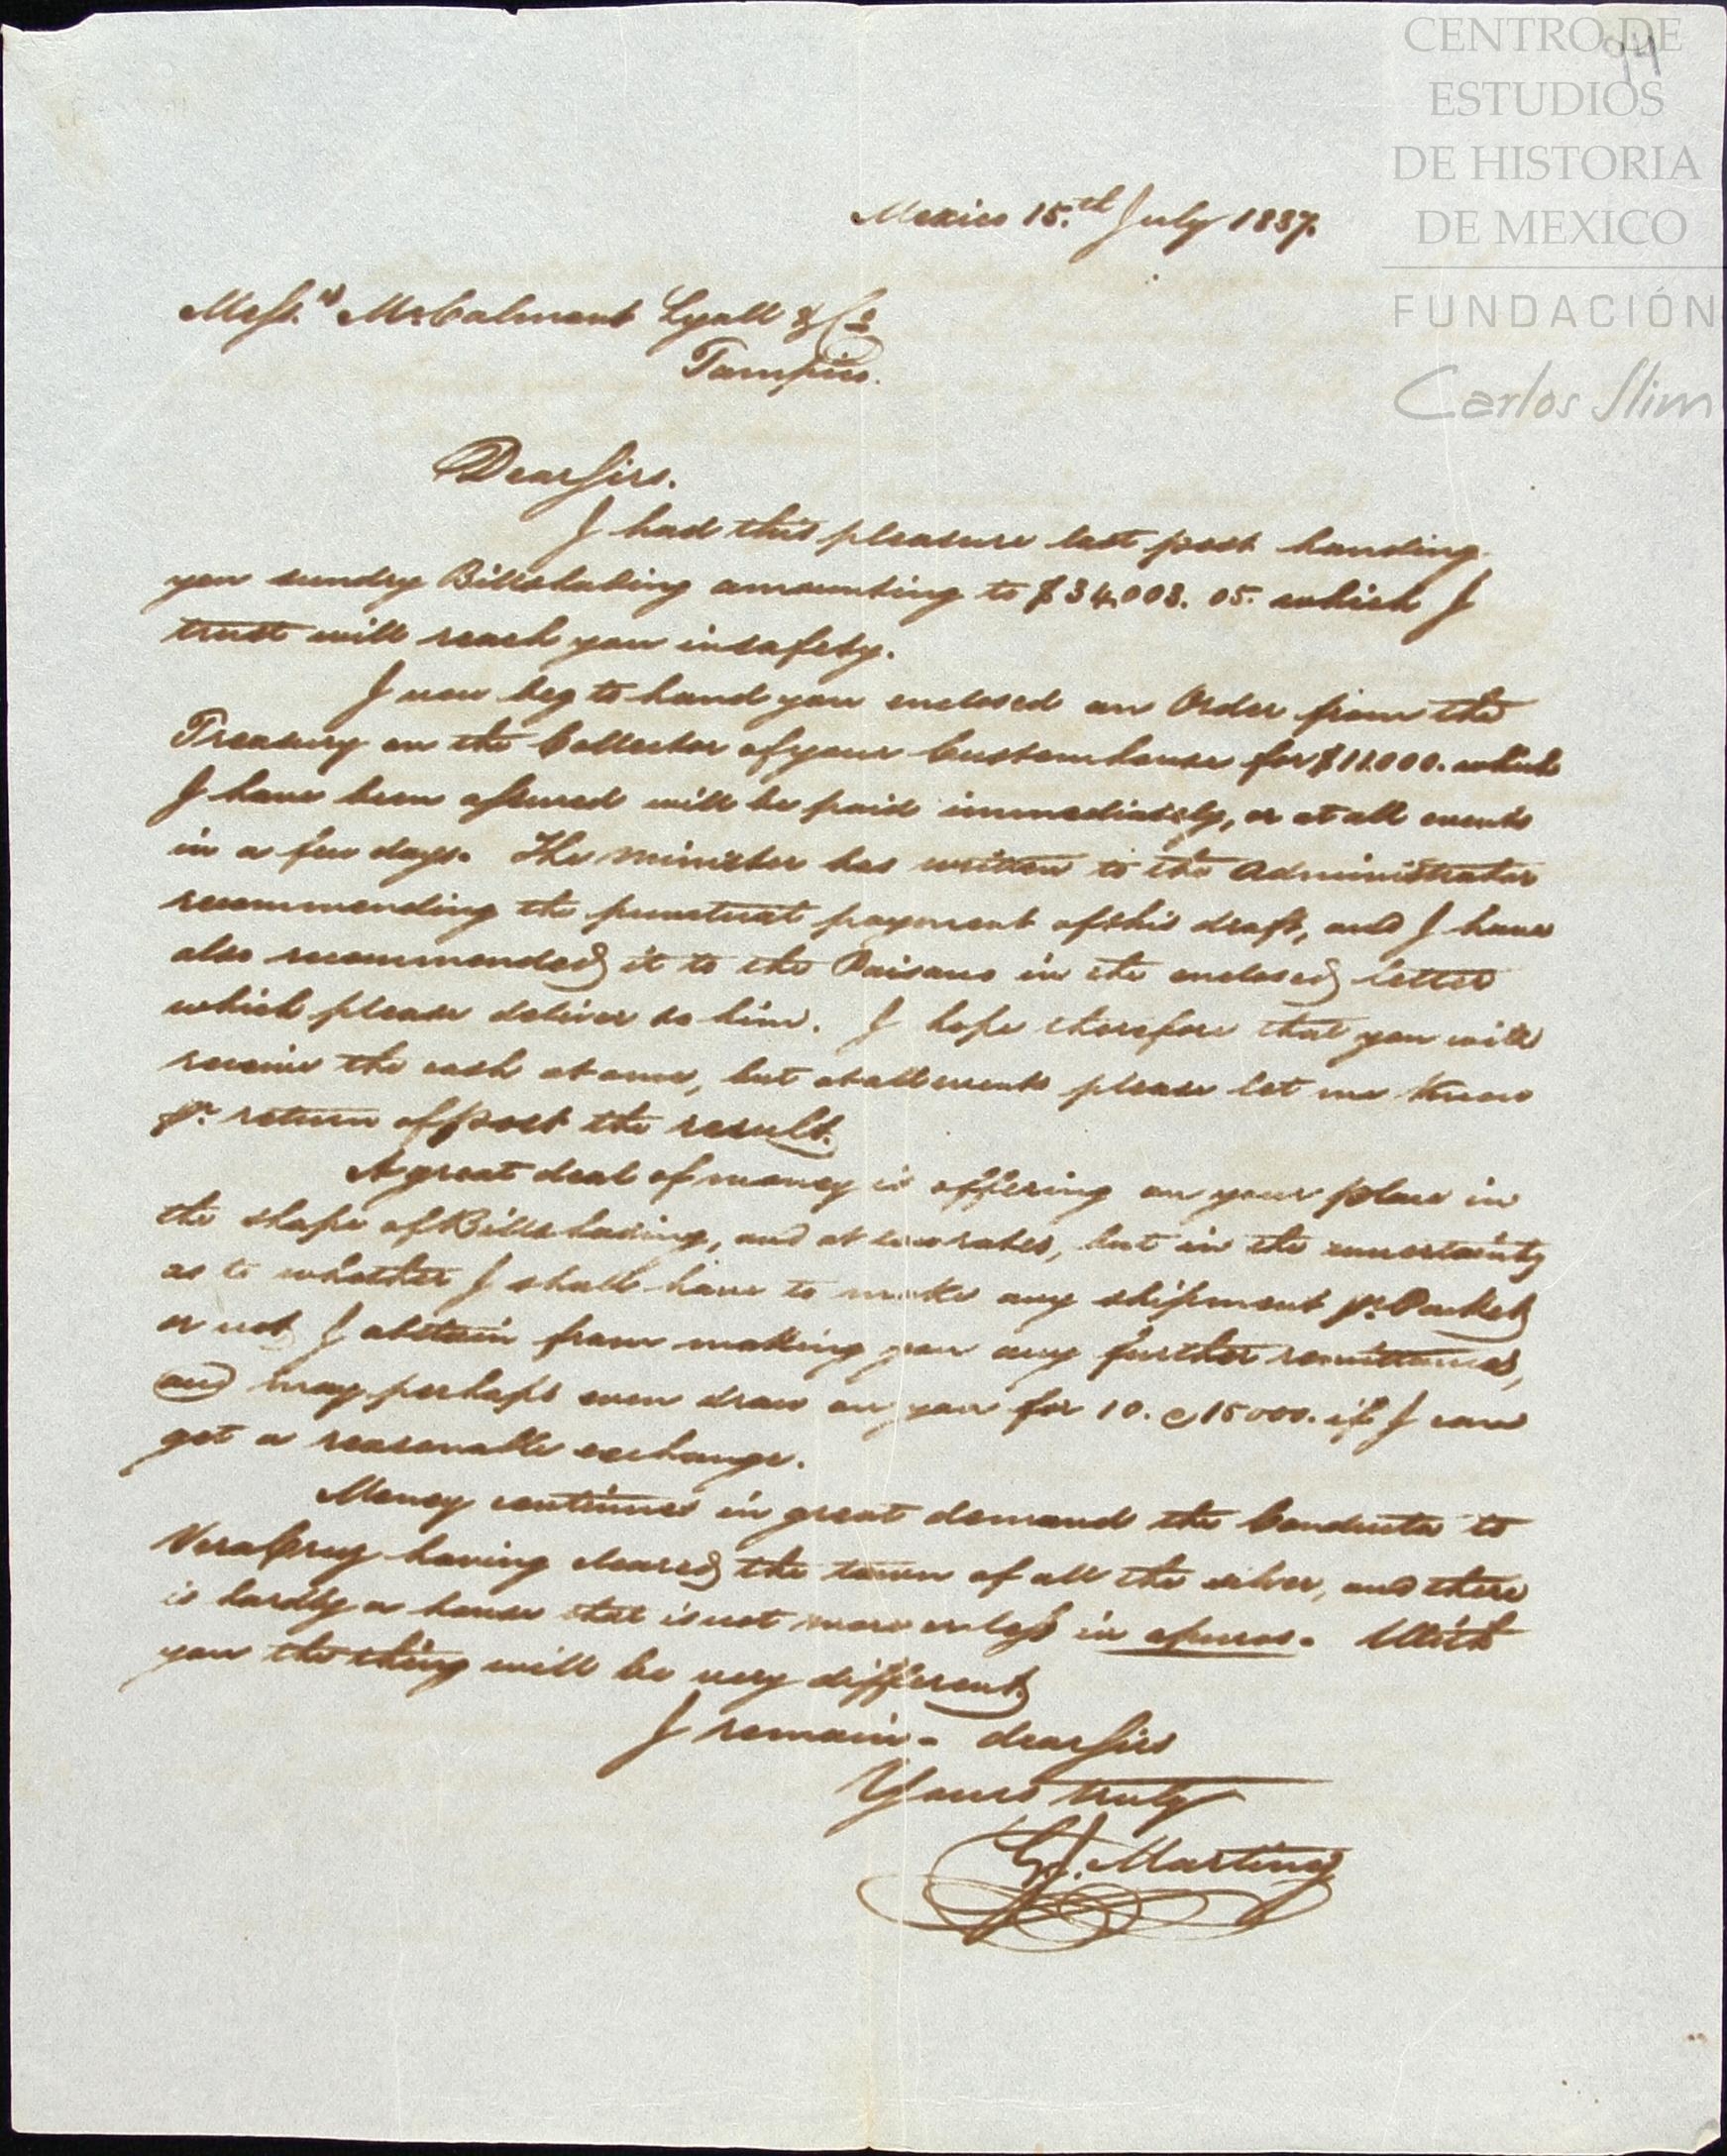 94
CENTRO DE
ESTUDIOS
DE HISTORIA
DE MEXICO
FUNDACIÓN
Carlos Slim
Mexico 15.th July 1837.
Mess.rs McCalmont Lyall & Co
Tampico.
Dear Sirs.
I had this pleasure last post handing
you sundry Bills lading amounting to $34,003. 05. which I
trust will reach you in safety.
I now beg to hand you enclosed an Order from the
Treasury on the Collector of your Custom house for $11.000. which
I have been assured will be paid immediately, or at all events
in a few days. The Minister has written to the Administrator
recommending the punctual payment of this draft, and I have
also recommended it to the Paisano in the enclosed letter
which please deliver to him. I hope therefore that you will
receive the cash at once, but at all events please let me know
pr. return of post the result.
A great deal of money is offering on your place in
the shape of Bills lading, and at low rates, but in the uncertainty
as to whether I shall have to make any shipment pr. Packet
or not, I abstain from making you any further remittances,
and may perhaps even draw on you for 10. @ 15000. if I can
get a reasonable exchange.
Money continues in great demand the Conducta to
VeraCruz having cleared the town of all the silver, and there
is hardly a house that is not more or less in apuros. With
you the thing will be very different
I remain - dear Sirs
Yours truly
Martinez